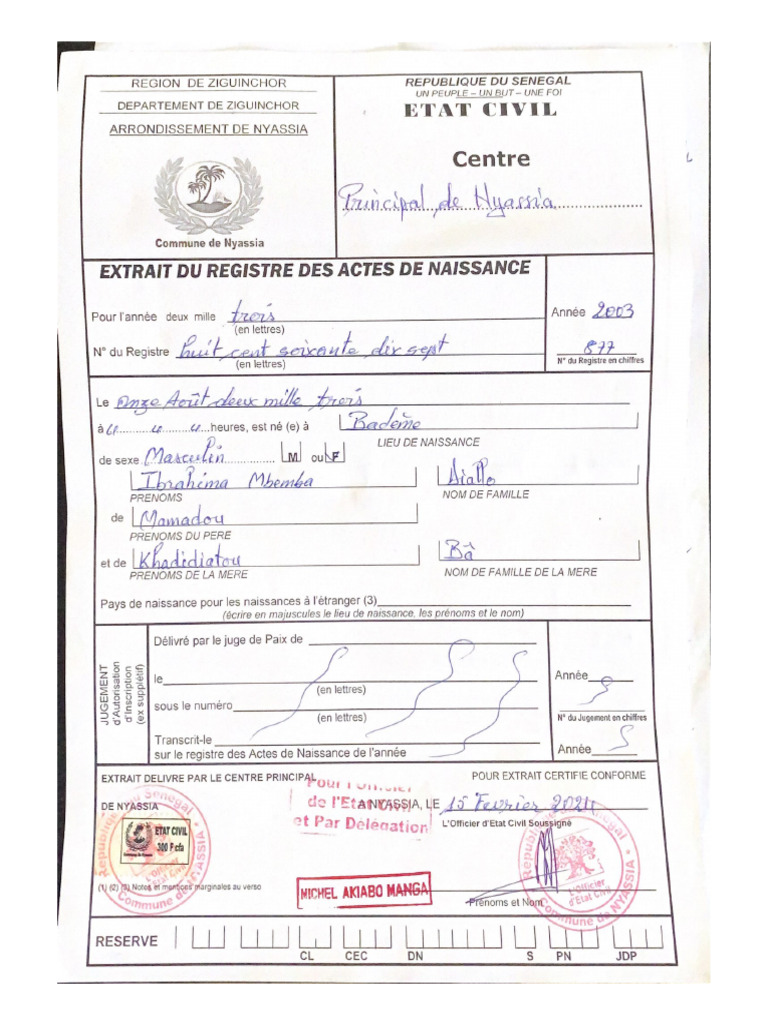 REGION DE ZIGUINCHOR
DEPARTEMENT DE ZIGUINCHOR
ARRONDISSEMENT DE NYASSIA
Commune de Nyassia
REPUBLIQUE DU SENEGAL
UN PEUPLE – UN BUT – UNE FOI
ETAT CIVIL
Centre
Principal de Nyassia
EXTRAIT DU REGISTRE DES ACTES DE NAISSANCE
Pour l'année deux mille trois Année 2003
(en lettres)
N° du Registre huit cent soixante dix sept 877
(en lettres) N° du Registre en chiffres
Le onze Août deux mille trois
à heures, est né (e) à Badème
LIEU DE NAISSANCE
de sexe Masculin M ou F
Ibrahima Mbemba Diallo
PRENOMS NOM DE FAMILLE
de Mamadou
PRENOMS DU PERE
et de Khadidiatou Bâ
PRENOMS DE LA MERE NOM DE FAMILLE DE LA MERE
Pays de naissance pour les naissances à l'étranger (3)
(écrire en majuscules le lieu de naissance, les prénoms et le nom)
JUGEMENT
d'Autorisation
d'Inscription
(ex supplétif)
Délivré par le juge de Paix de
le Année
(en lettres)
sous le numéro
(en lettres) N° du Jugement en chiffres
Transcrit-le Année
sur le registre des Actes de Naissance de l'année
EXTRAIT DELIVRE PAR LE CENTRE PRINCIPAL POUR EXTRAIT CERTIFIE CONFORME
DE NYASSIA A NYASSIA, LE 15 Février 2024
L'Officier d'Etat Civil Soussigné
Pour l'Officier
de l'Etat Civil
et Par Délégation
ETAT CIVIL
300 F.cfa
Commune de Nyassia
République du Sénégal
L'Officier
d'Etat Civil
Commune de NYASSIA
(1) (2) (3) Notes et mentions marginales au verso
MICHEL AKIABO MANGA
Prénoms et Nom
République du Sénégal
L'Officier
d'Etat Civil
Commune de NYASSIA
RESERVE
CL CEC DN S PN JDP